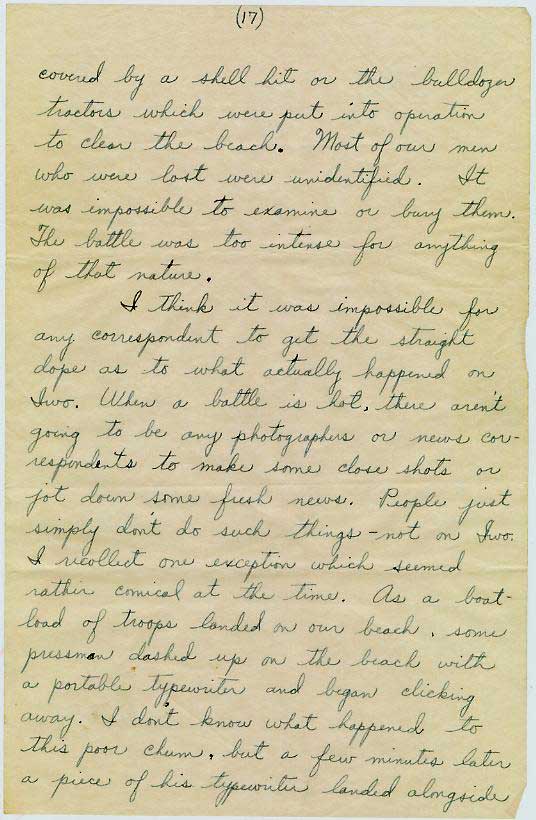 (17)
covered by a shell hit or the bulldozer
tractors which were put into operation
to clear the beach. Most of our men
who were lost were unidentified. It
was impossible to examine or bury them.
The battle was too intense for anything
of that nature.
I think it was impossible for
any correspondent to get the straight
dope as to what actually happened on
Iwo. When a battle is hot, there aren't
going to be any photographers or news cor-
respondents to make some close shots or
jot down some fresh news. People just
simply don't do such things - not on Iwo.
I recollect one exception which seemed
rather comical at the time. As a boat-
load of troops landed on our beach, some
pressman dashed up on the beach with
a portable typewriter and began clicking
away. I don't know what happened to
this poor chum, but a few minutes later
a piece of his typewriter landed alongside